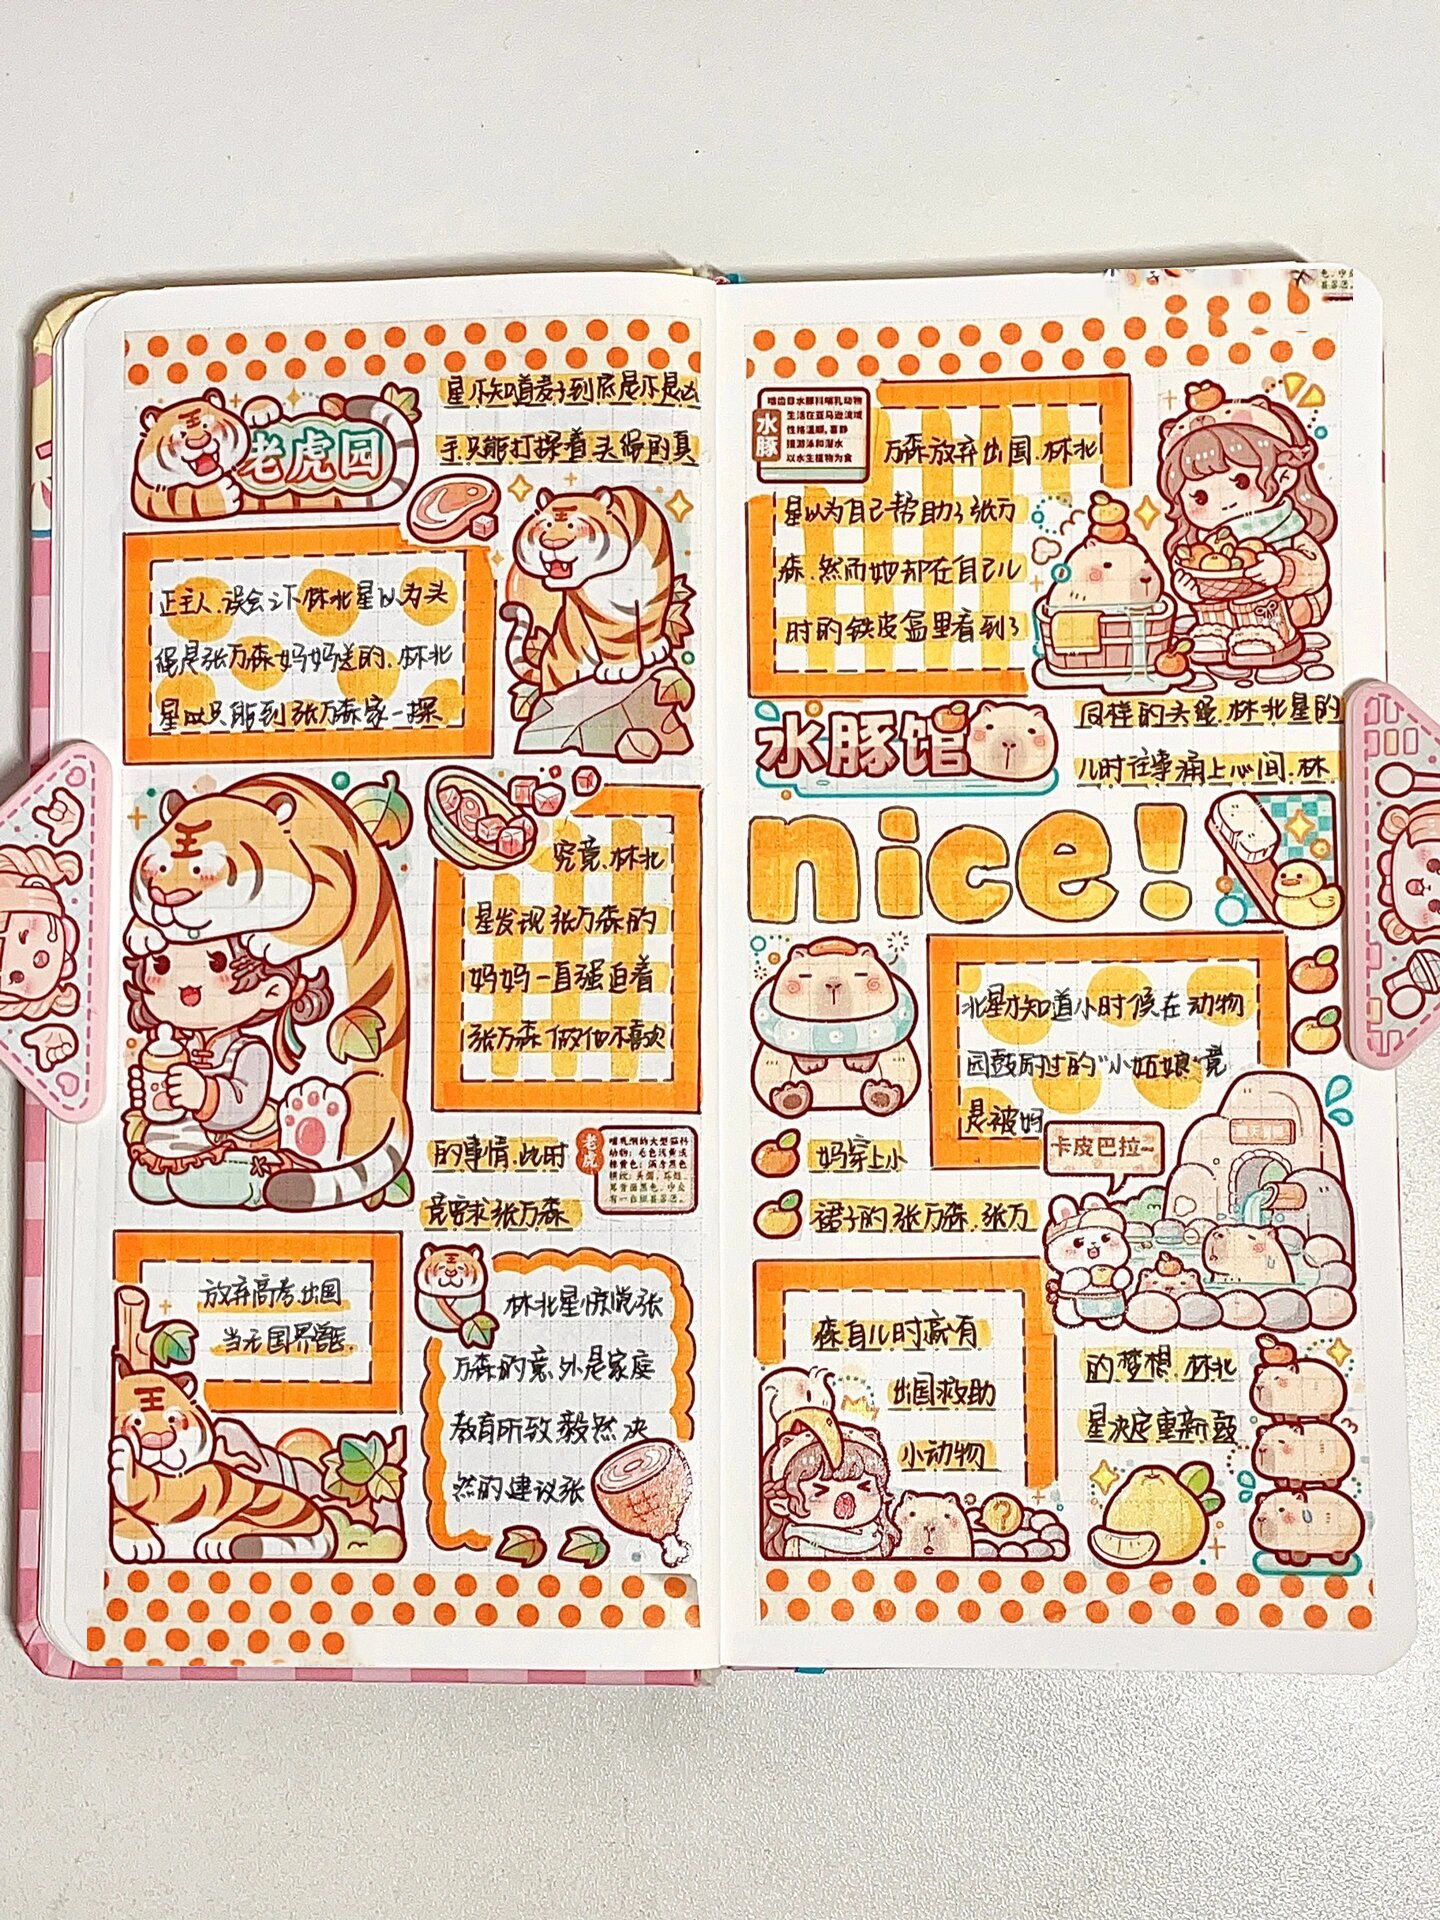 老虎园
星不知道麦子到底是不是凶
手只能打探着头绳的真
正主人,误会之下林北星以为头
绳是张万森妈妈送的,林北
星以只能到张万森家一探
究竟,林北
星发现张万森的
妈妈一直强迫着
张万森做他不喜欢
的事情,此时
竟要求张万森
老虎
放弃高考出国
当无国界兽医.
林北星惊觉张
万森的意外是家庭
教育所致毅然决
然的建议张
水豚
啮齿目水豚科哺乳动物
生活在亚马逊流域
性格温顺,喜静
擅游泳和潜水
以水生植物为食
万森放弃出国.林北
星以为自己帮助了张万
森.然而她却在自己儿
时的铁皮盒里看到了
水豚馆
同样的头绳.林北星的
儿时往事涌上心间.林
nice!
北星才知道小时候在动物
园鼓励过的"小姑娘"竟
是被妈
卡皮巴拉~
妈穿上小
裙子的张万森.张万
森自儿时就有
出国救助
小动物
的梦想.林北
星决定重新鼓